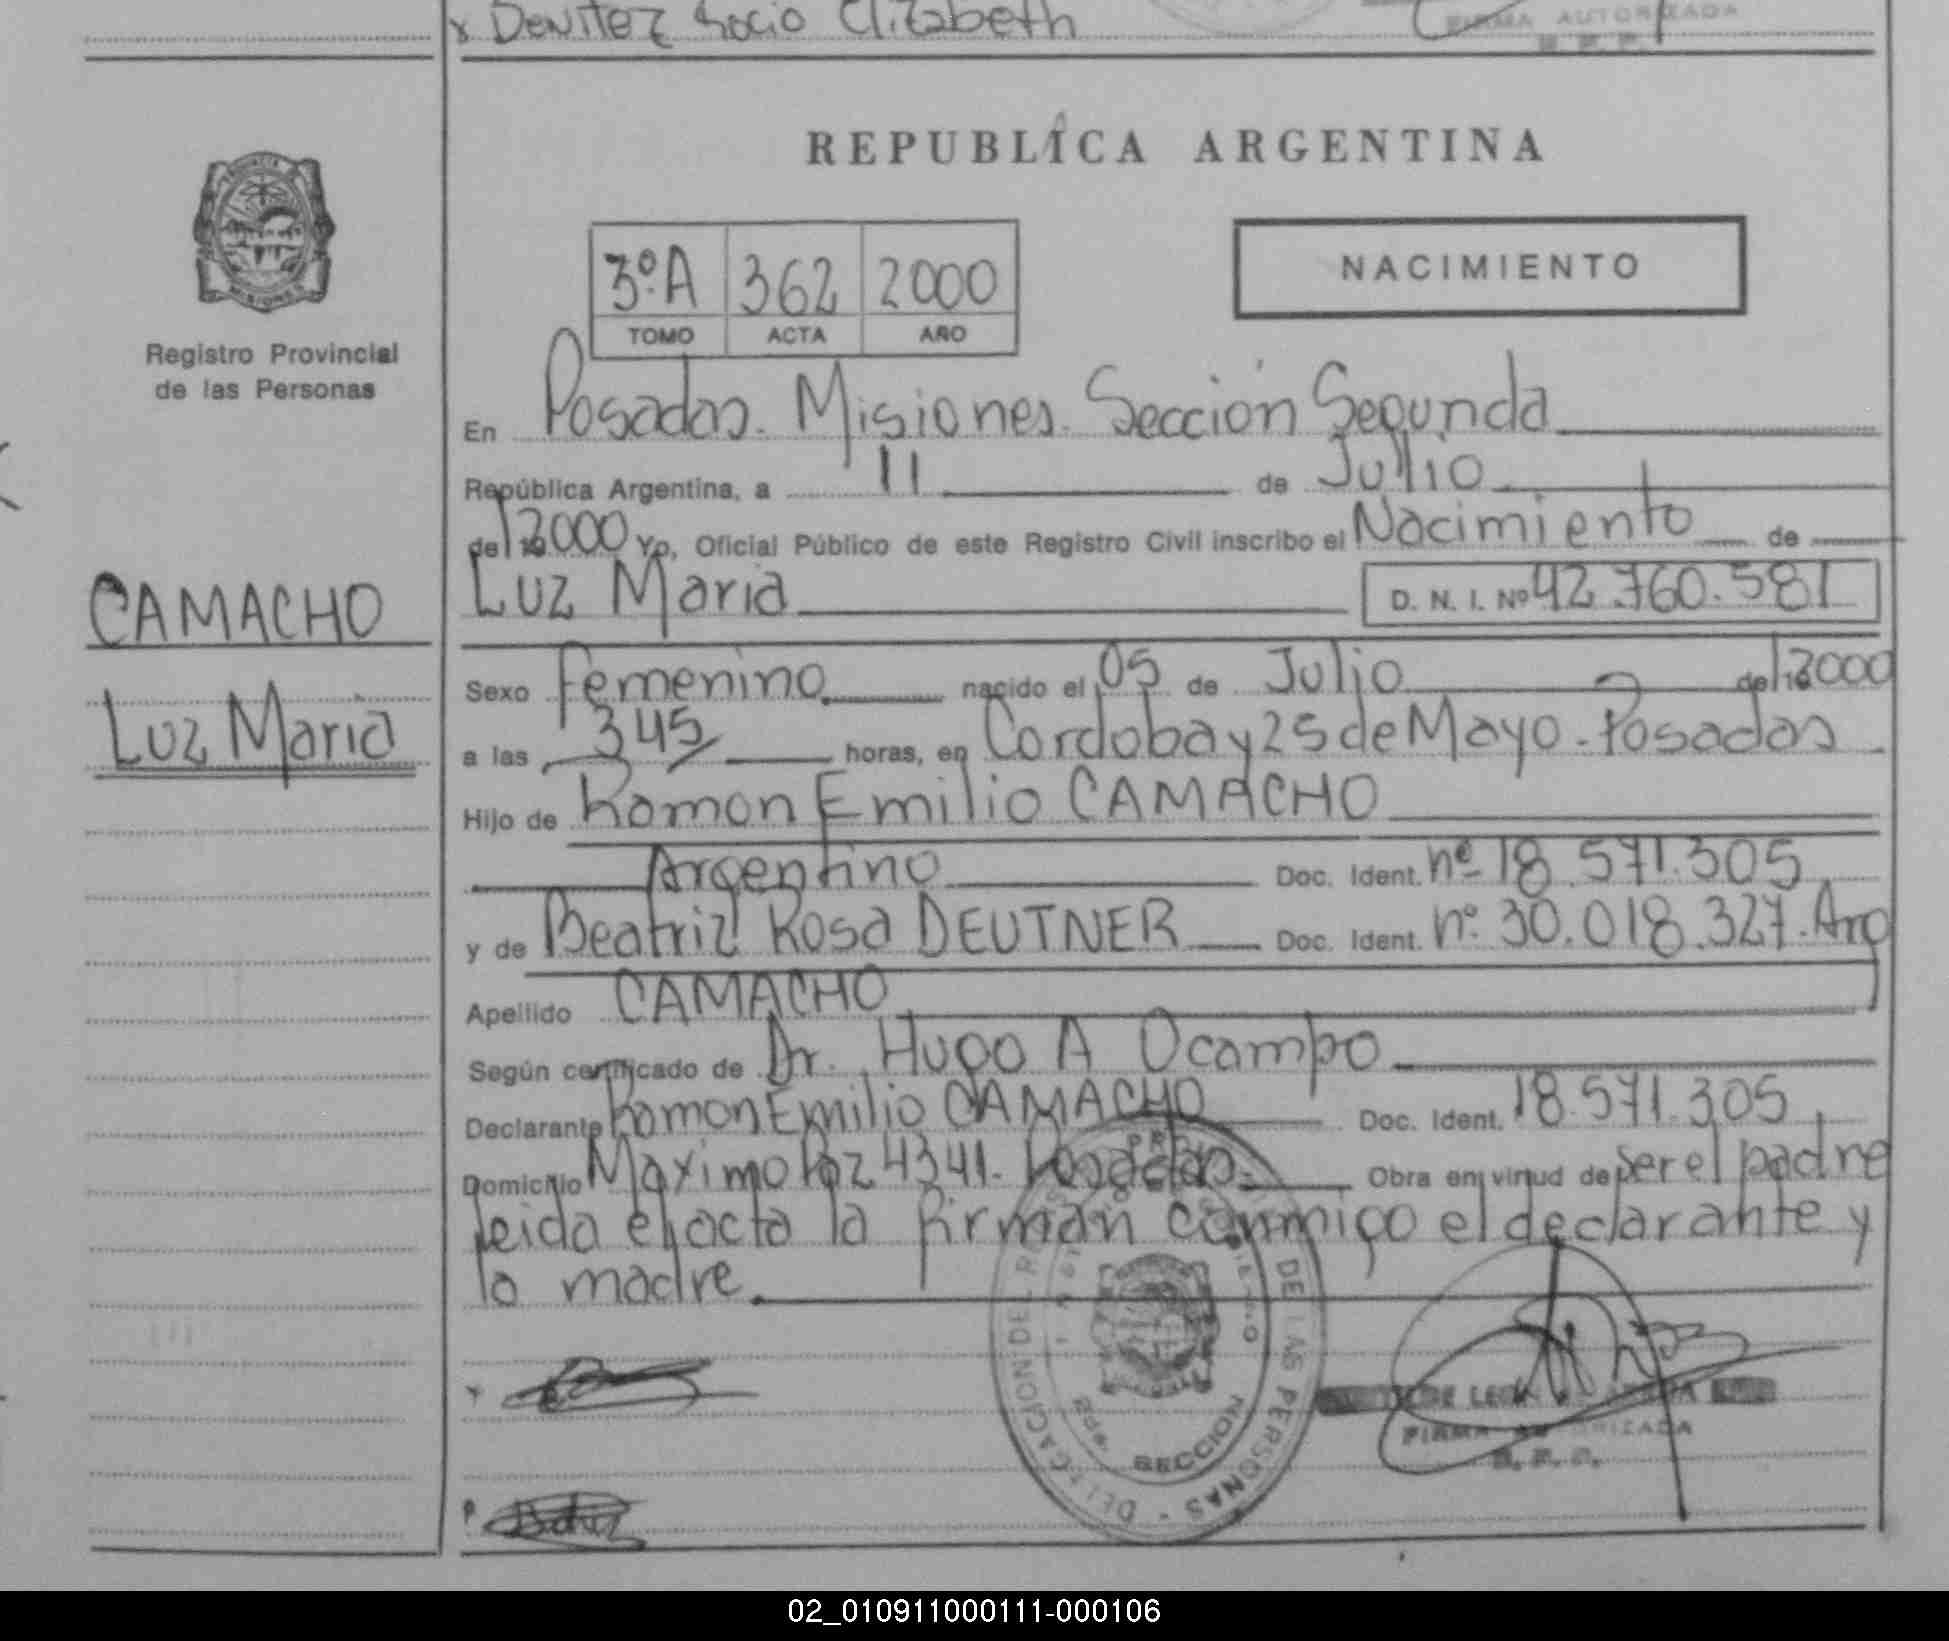 x Benitez Rocio Elizabeth
FIRMA AUTORIZADA
R. P. P.
REPUBLICA ARGENTINA
3º A 362 2000
TOMO ACTA AÑO
NACIMIENTO
MISIONES
Registro Provincial
de las Personas
En Posadas. Misiones. Sección Segunda
República Argentina, a 11 de Jullio
de 2000 Yo, Oficial Público de este Registro Civil inscribo el Nacimiento de
CAMACHO
Luz Maria
Luz Maria D. N. I. Nº 42.760.581
Sexo femenino nacido el 05 de Julio de 2000
a las 345 horas, en Cordoba y 25 de Mayo - Posadas
Hijo de Ramon Emilio CAMACHO
Argentino Doc. Ident. nº 18.571.305
y de Beatriz Rosa DEUTNER Doc. Ident. nº 30.018.327. Arg
Apellido CAMACHO
Según certificado de Dr. Hugo A Ocampo
Declarante Ramon Emilio CAMACHO Doc. Ident. 18.571.305
Domicilio Maximo Paz 4341. Posadas. Obra en virtud de ser el padre
leida el acta la firman conmigo el declarante y
la madre.
DELEGACION DEL DE LAS PERSONAS
2da. SECCION
FIRMA AUTORIZADA
R. P. P.
02_010911000111-000106